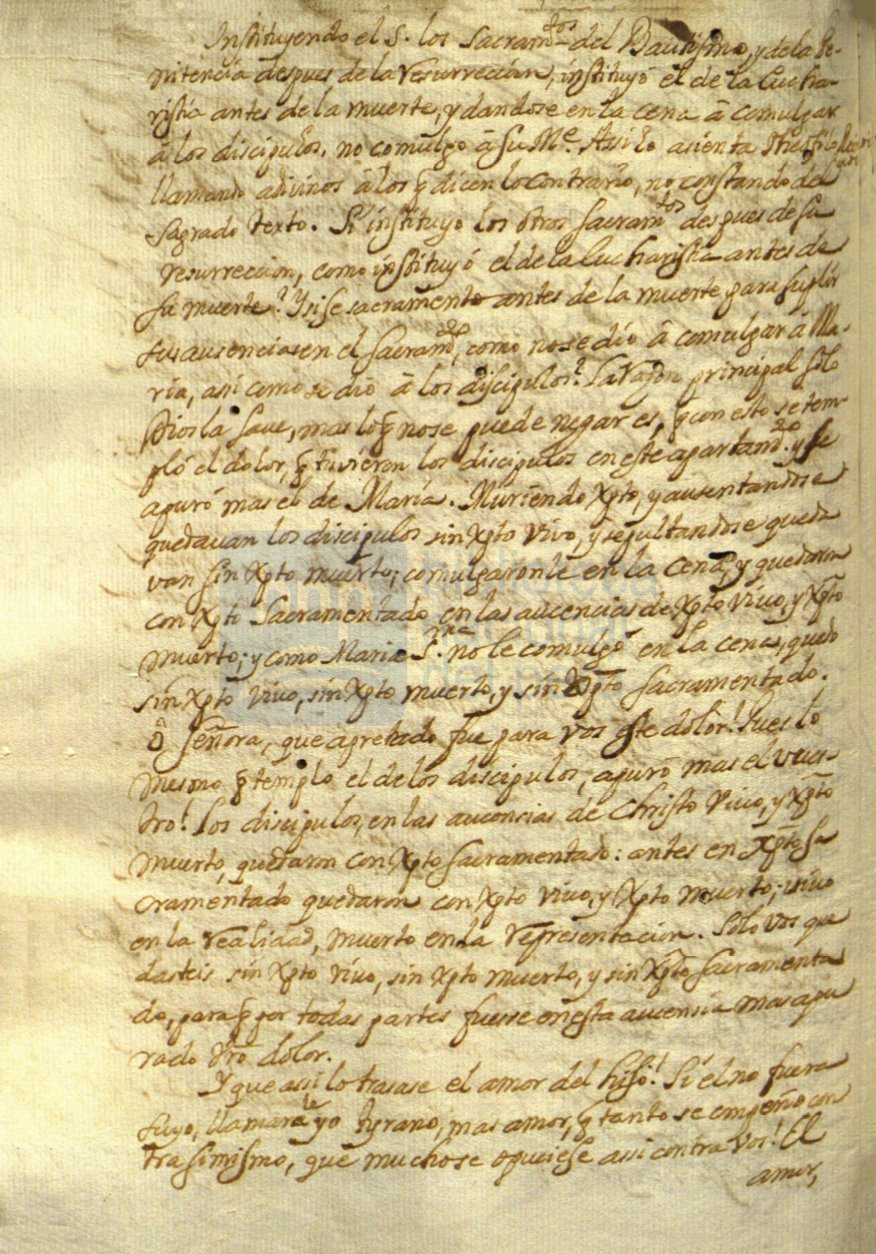 Instituyendo el S. los Sacramtos del Bautismo, y de la Pe-
nitencia despues de la resurreccion, instituyó el de la Eucha-
ristia antes de la muerte, y dandose en la cena â comulgar
â los discipulos, no comulgo â Su Me. Assi lo asienta
llamando adivinos â los q̃ dicen lo contrario, no constando del
Sagrado texto. Si instituyo los otros Sacramtos despues de su
resurreccion, como instituyó el de la Eucharistia antes de
su muerte? Y si se sacramento antes de la muerte para suplir
sus ausencias en el Sacramdo, como no se dio â comulgar â Ma-
ria, assi como se dio â los discipulos? La razon principal solo
Dios la save, mas lo q̃ no se puede negar es, q̃ con esto se tem-
pló el dolor, q̃ tuvieron los discipulos en este apartamdo. y se
apuró mas el de Maria. Muriendo Xpto, y ausentandose
quedavan los discipulos sin Xpto vivo, y sepultandose queda
van sin Xpto muerto; comulgaronle en la Cena, y quedaron
con Xpto Sacramentado en las aucencias de Xpto vivo, y Xpto
muerto; y como Maria Sra. no le comulgó en la cena, quedo
sin Xpto vivo, sin Xpto muerto, y sin Xpto Sacramentado.
ô Señora, que apretado fue para vos este dolor! Pues lo
mesmo q̃ templo el de los discipulos, apuró mas el vues-
tro! Los discipulos, en las aucencias de Christo vivo, y Xpto
muerto, quedaron con Xpto Sacramentado: antes en Xpto Sa
cramentado quedaron con Xpto vivo, y Xpto muerto; vivo
en la realidad, muerto en la representacion. Solo vos que
dasteis sin Xpto vivo, sin Xpto muerto, y sin Xpto Sacramenta
do, para q̃ por todas partes fuesse en esta aucensia mas apu
rado vro dolor.
Y que assi lo trasase el amor del hijo! Si el no fuera
suyo, llamarale yo tyrano, mas amor, q̃ tanto se empeño con
tra simismo, que mucho se opuciese assi contra vos! El
amor,
biblioteca
nacional
del perú